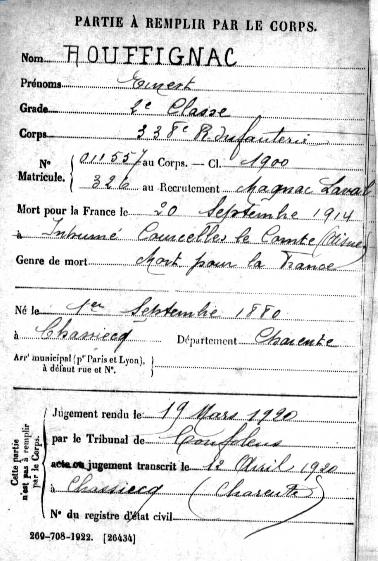 PARTIE À REMPLIR PAR LE CORPS.
Nom ROUFFIGNAC
Prénoms Ernest
Grade 2e Classe
Corps 338e R d'Infanterie
N° Matricule. 011557 au Corps. — Cl. 1900
326 au Recrutement Magnac Laval
Mort pour la France le 20 Septembre 1914
à Inhumé Courcelles le Comte (Aisne)
Genre de mort Mort pour la France
Né le 1er Septembre 1880
à Chassiecq Département Charente
Arrt municipal (pr Paris et Lyon), à défaut rue et N°.
Cette partie n'est pas à remplir par le Corps.
Jugement rendu le 19 Mars 1920
par le Tribunal de Confolens
acte ou jugement transcrit le 12 Avril 1920
à Chassiecq (Charente)
N° du registre d'état civil
269-708-1922. [26434]